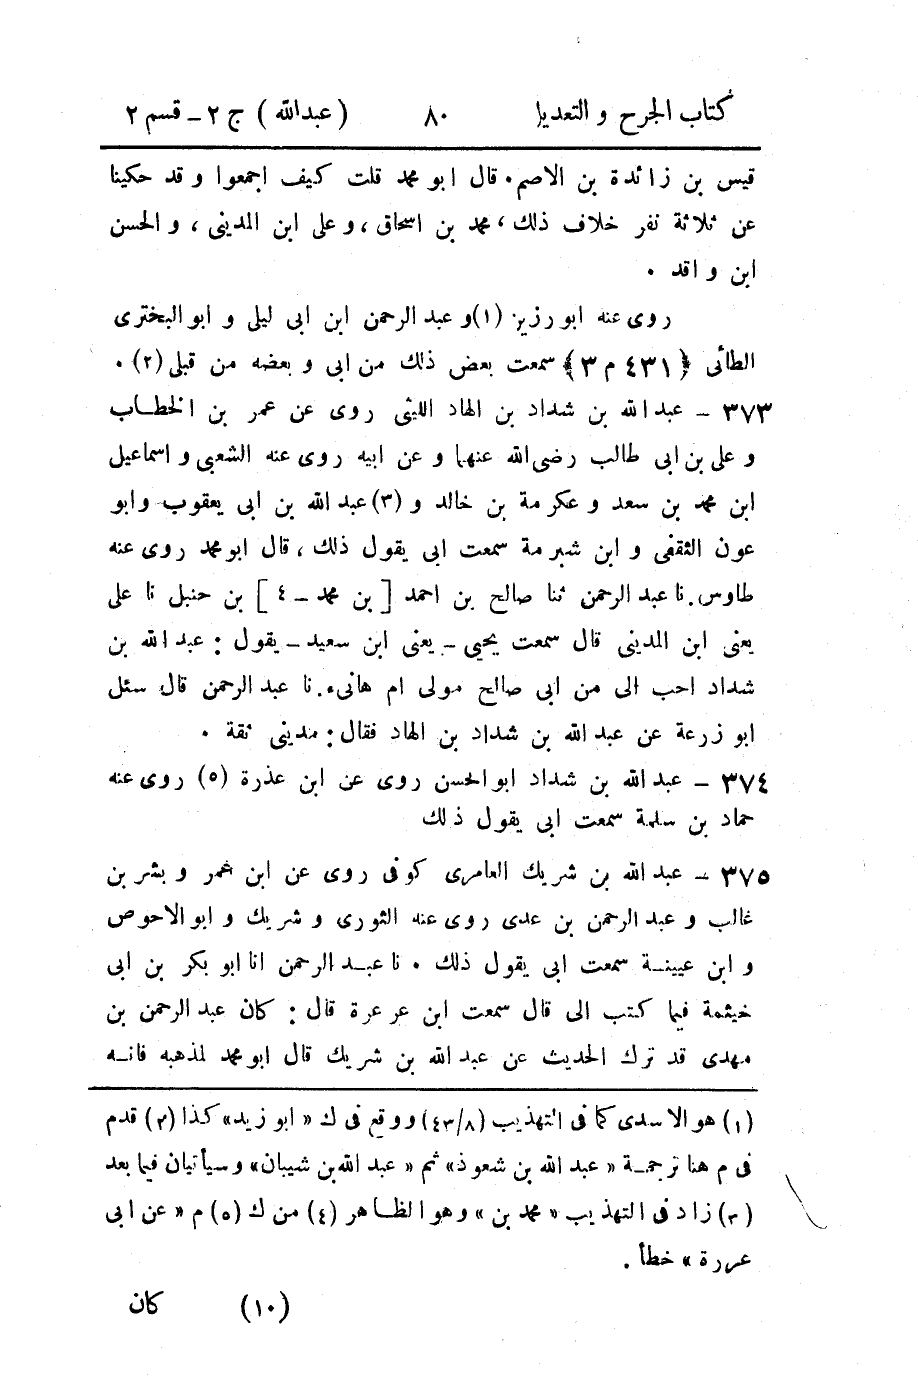 كتاب الجرح و التعديل ٨٠ ( عبدالله ) ج ٢ - قسم ٢
قيس بن زائدة بن الاصم. قال ابو محمد قلت كيف اجمعوا و قد حكينا
عن ثلاثة نفر خلاف ذلك ، محمد بن اسحاق ، و على ابن المدينى ، و الحسن
ابن و اقد .
روى عنه ابو رزين (١) و عبد الرحمن ابن ابى ليلى و ابو البخترى
الطائى ﴿ ٤٣١ م ٣ ﴾ سمعت بعض ذلك من ابى و بعضه من قبلى (٢) .
٣٧٣ - عبد الله بن شداد بن الهاد الليثى روى عن عمر بن الخطاب
و على بن ابى طالب رضى الله عنهما و عن ابيه روى عنه الشعبى و اسماعيل
ابن محمد بن سعد و عكرمة بن خالد و (٣) عبد الله بن ابى يعقوب و ابو
عون الثقفى و ابن شبرمة سمعت ابى يقول ذلك ، قال ابو محمد روى عنه
طاوس. نا عبد الرحمن ثنا صالح بن احمد [ بن محمد - ٤ ] بن حنبل نا على
يعنى ابن المدينى قال سمعت يحيى - يعنى ابن سعيد - يقول : عبد الله بن
شداد احب الى من ابى صالح مولى ام هانىء. نا عبد الرحمن قال سئل
ابو زرعة عن عبد الله بن شداد بن الهاد فقال : مدينى ثقة .
٣٧٤ - عبد الله بن شداد ابو الحسن روى عن ابن عذرة (٥) روى عنه
حماد بن سلمة سمعت ابى يقول ذلك
٣٧٥ - عبد الله بن شريك العامرى كوفى روى عن ابن عمر و بشر بن
غالب و عبد الرحمن بن عدى روى عنه الثورى و شريك و ابو الاحوص
و ابن عيينة سمعت ابى يقول ذلك . نا عبد الرحمن انا ابو بكر بن ابى
خيثمة فيما كتب الى قال سمعت ابن عرعرة قال : كان عبد الرحمن بن
مهدى قد ترك الحديث عن عبد الله بن شريك قال ابو محمد لمذهبه فانه
(١) هو الاسدى كما فى التهذيب (٤٣/٨) ووقع فى ك « ابو زيد» كذا (٢) قدم
فى م هنا ترجمة « عبد الله بن شعوذ» ثم « عبد الله بن شيبان» وسيأتيان فيما بعد
(٣) زاد فى التهذيب « محمد بن » وهو الظاهر (٤) من ك (٥) م « عن ابى
عررة » خطأ .
(١٠) كان